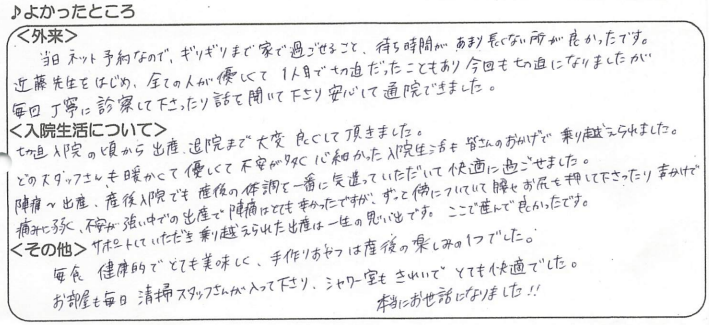 ♪よかったところ
<外来>
当日ネット予約なので、ギリギリまで家で過ごせること、待ち時間があまり長くない所が良かったです。
近藤先生をはじめ、全ての人が優しくて1人目で切迫だったこともあり今回も切迫になりましたが
毎回丁寧に診察して下さったり話を聞いて下さり安心して通院できました。
<入院生活について>
切迫入院の頃から出産、退院まで大変良くして頂きました。
どのスタッフさんも暖かくて優しくて不安が多く心細かった入院生活も皆さんのおかげで乗り越えられました。
陣痛~出産、産後入院でも産後の体調を一番に気遣っていただいて快適に過ごせました。
痛みに弱く、不安が強い中での出産で陣痛はとても辛かったですが、ずっと傍についていて腰やお尻を押して下さったり声かけで
サポートしていただき乗り越えられた出産は一生の思い出です。ここで産んで良かったです。
<その他>
毎食健康的でとても美味しく、手作りおやつは産後の楽しみの1つでした。
お部屋も毎日清掃スタッフさんが入って下さり、シャワー室もきれいでとても快適でした。
本当にお世話になりました!!